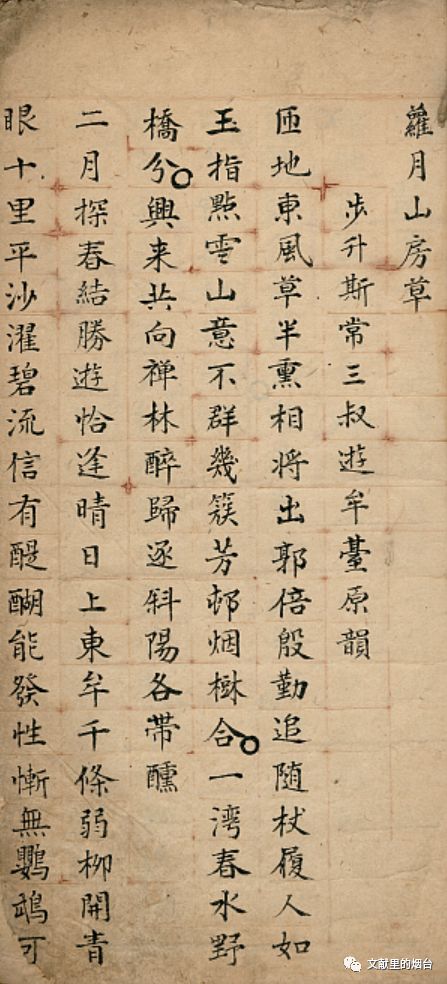 蘿月山房草
步升斯常三叔遊牟臺原韻
匝地東風草半熏相將出郭倍殷勤追随杖履人如
玉指點雪山意不群幾簇芳邨烟樹合一湾春水野
橋分興来共向禅林醉歸逐斜陽各带醺
二月探春結勝遊恰逢晴日上東牟千條弱柳開青
眼十里平沙濯碧流信有醍醐能發性慚無鸚鵡可
文献里的烟台